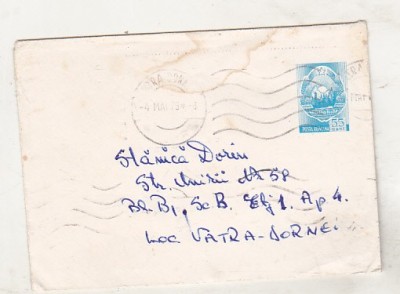 POSTA ROMANA
55
Stănică Dorin
Str. Unirii Nr 58
Bl. B1, Sc B. Etj 1. Ap 4.
Loc. VATRA-DORNEI